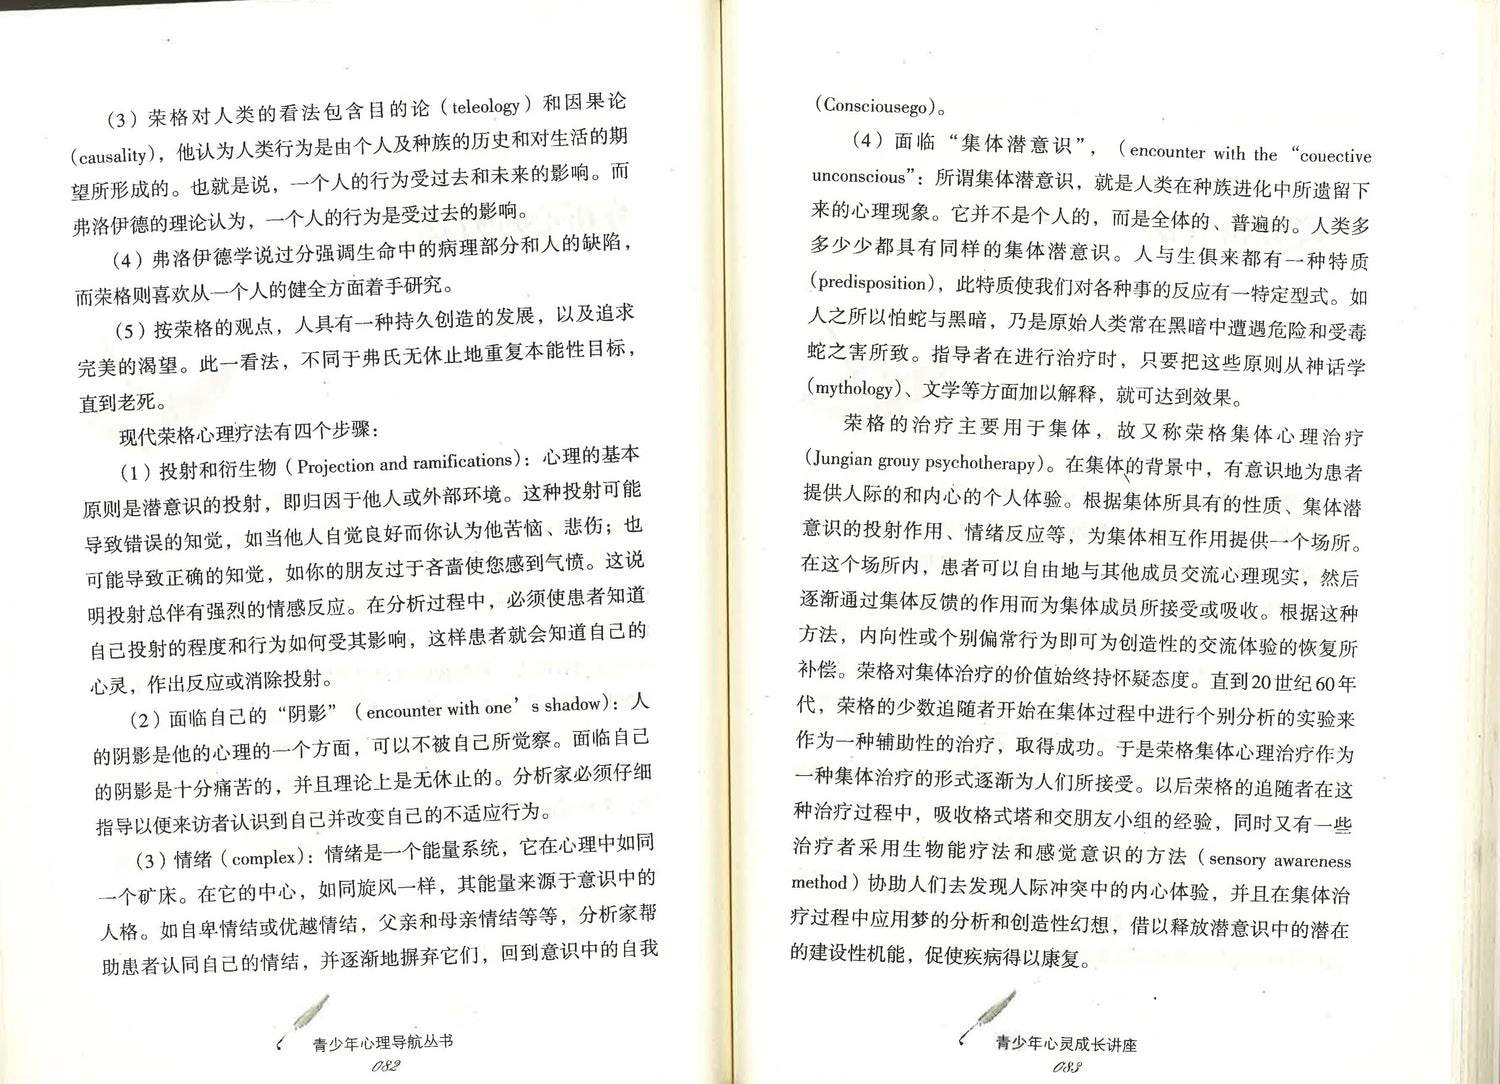 （3）荣格对人类的看法包含目的论（teleology）和因果论
（causality），他认为人类行为是由个人及种族的历史和对生活的期
望所形成的。也就是说，一个人的行为受过去和未来的影响。而
弗洛伊德的理论认为，一个人的行为是受过去的影响。
（4）弗洛伊德学说过分强调生命中的病理部分和人的缺陷，
而荣格则喜欢从一个人的健全方面着手研究。
（5）按荣格的观点，人具有一种持久创造的发展，以及追求
完美的渴望。此一看法，不同于弗氏无休止地重复本能性目标，
直到老死。
现代荣格心理疗法有四个步骤：
（1）投射和衍生物（Projection and ramifications）：心理的基本
原则是潜意识的投射，即归因于他人或外部环境。这种投射可能
导致错误的知觉，如当他人自觉良好而你认为他苦恼、悲伤；也
可能导致正确的知觉，如你的朋友过于吝啬使您感到气愤。这说
明投射总伴有强烈的情感反应。在分析过程中，必须使患者知道
自己投射的程度和行为如何受其影响，这样患者就会知道自己的
心灵，作出反应或消除投射。
（2）面临自己的“阴影”（encounter with one’s shadow）：人
的阴影是他的心理的一个方面，可以不被自己所觉察。面临自己
的阴影是十分痛苦的，并且理论上是无休止的。分析家必须仔细
指导以便来访者认识到自己并改变自己的不适应行为。
（3）情绪（complex）：情绪是一个能量系统，它在心理中如同
一个矿床。在它的中心，如同旋风一样，其能量来源于意识中的
人格。如自卑情结或优越情结，父亲和母亲情结等等，分析家帮
助患者认同自己的情结，并逐渐地摒弃它们，回到意识中的自我
青少年心理导航丛书
082
（Consciousego）。
（4）面临“集体潜意识”，（encounter with the “couective
unconscious”：所谓集体潜意识，就是人类在种族进化中所遗留下
来的心理现象。它并不是个人的，而是全体的、普遍的。人类多
多少少都具有同样的集体潜意识。人与生俱来都有一种特质
（predisposition），此特质使我们对各种事的反应有一特定型式。如
人之所以怕蛇与黑暗，乃是原始人类常在黑暗中遭遇危险和受毒
蛇之害所致。指导者在进行治疗时，只要把这些原则从神话学
（mythology）、文学等方面加以解释，就可达到效果。
荣格的治疗主要用于集体，故又称荣格集体心理治疗
（Jungian grouy psychotherapy）。在集体的背景中，有意识地为患者
提供人际的和内心的个人体验。根据集体所具有的性质、集体潜
意识的投射作用、情绪反应等，为集体相互作用提供一个场所。
在这个场所内，患者可以自由地与其他成员交流心理现实，然后
逐渐通过集体反馈的作用而为集体成员所接受或吸收。根据这种
方法，内向性或个别偏常行为即可为创造性的交流体验的恢复所
补偿。荣格对集体治疗的价值始终持怀疑态度。直到20世纪60年
代，荣格的少数追随者开始在集体过程中进行个别分析的实验来
作为一种辅助性的治疗，取得成功。于是荣格集体心理治疗作为
一种集体治疗的形式逐渐为人们所接受。以后荣格的追随者在这
种治疗过程中，吸收格式塔和交朋友小组的经验，同时又有一些
治疗者采用生物能疗法和感觉意识的方法（sensory awareness
method）协助人们去发现人际冲突中的内心体验，并且在集体治
疗过程中应用梦的分析和创造性幻想，借以释放潜意识中的潜在
的建设性机能，促使疾病得以康复。
青少年心灵成长讲座
083